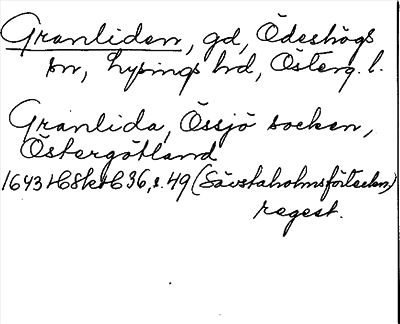 Granliden, gd, Ödeshögs
sn, Lysings hd, Österg. l.
Granlida, Össjö socken,
Östergötland
1643 HSH 36, s. 49 (Sävstaholmsförtecken)
regest.